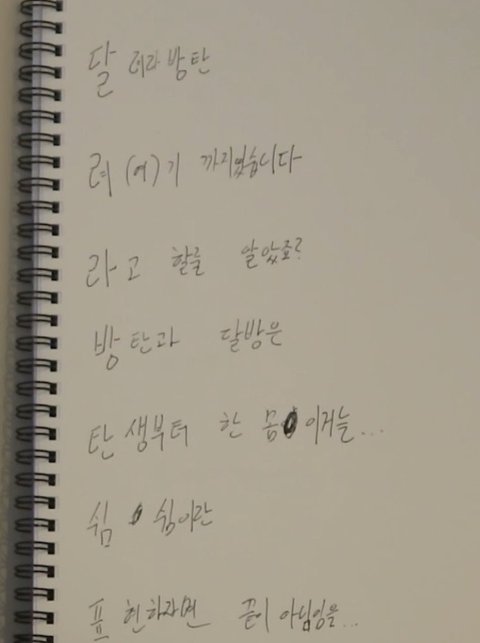 달 려라 방탄
려 (여)기 까지였습니다
라고 할줄 알았죠?
방탄과 달방은
탄생부터 한 몸 이거늘...
쉼 쉼이란
표현하자면 끝이 아님임을...